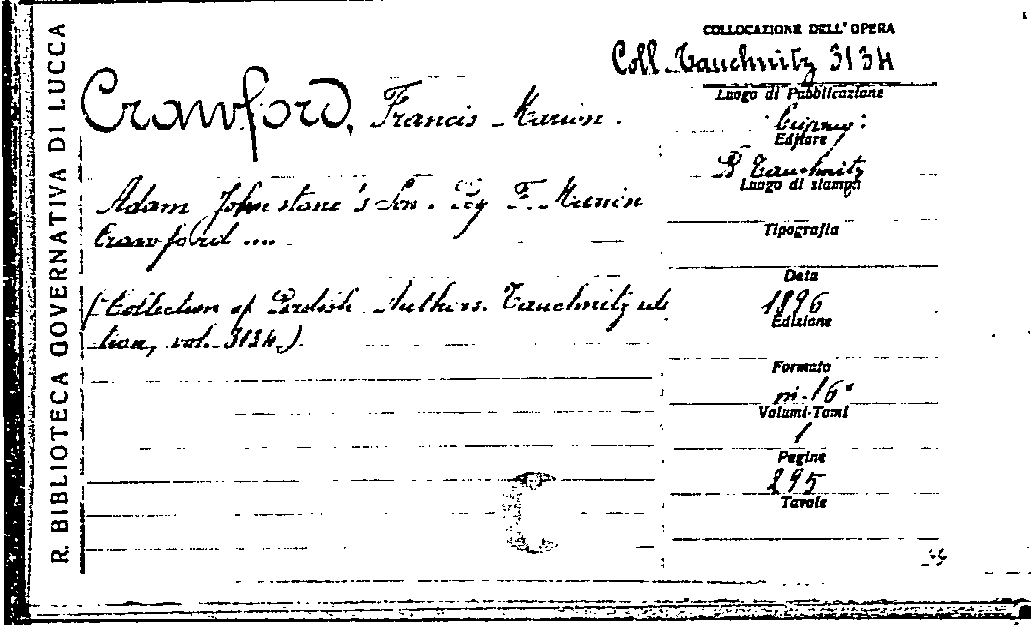 R. BIBLIOTECA GOVERNATIVA DI LUCCA
Crawford, Francis Marion.
Adam Johnstone's Son. By F. Marion
Crawford ....
(Collection of British Authors. Tauchnitz edi
tion, vol. 3134.)
COLLOCAZIONE DELL'OPERA
Coll. Tauchnitz 3134
Luogo di Pubblicazione
Editore
B Tauchnitz
Luogo di stampa
Tipografia
Data
1896
Edizione
Formato
in-16°
Volumi-Tomi
1
Pagine
295
Tavole
C